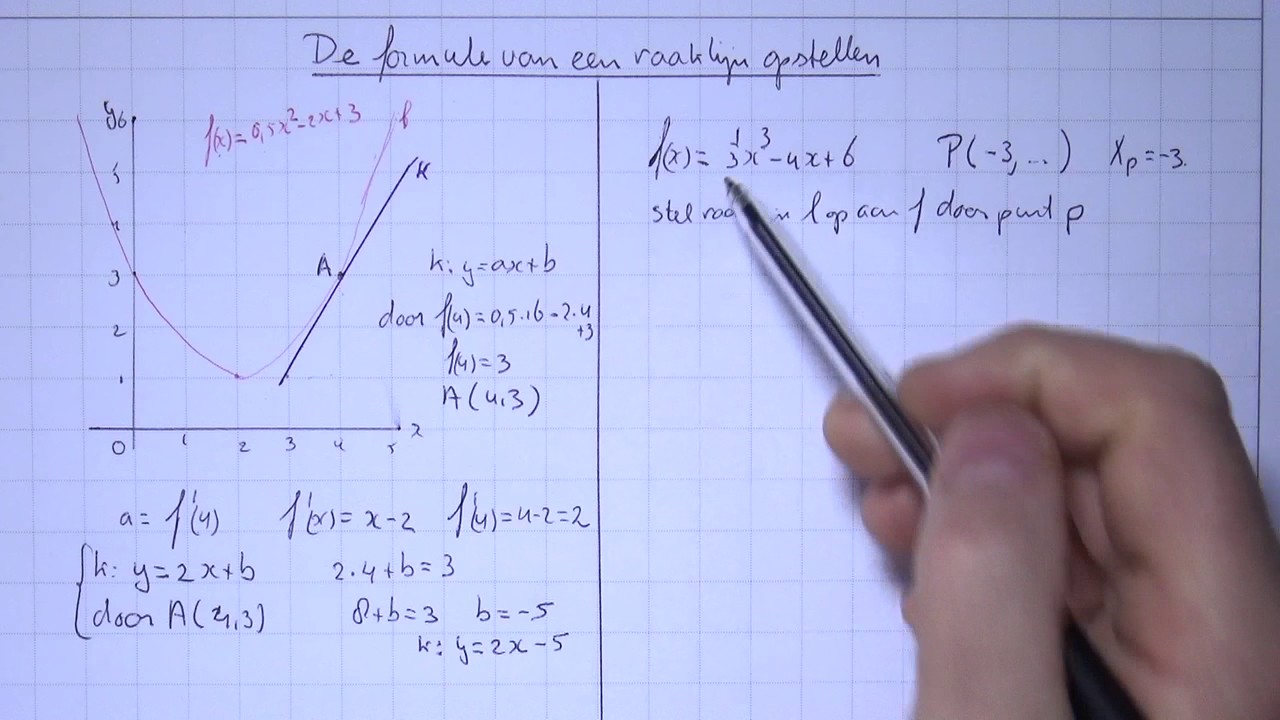 De formule van een raaklijn opstellen
y 6
5
4
3
2
1
0 1 2 3 4 5 x
f(x)=0,5x²-2x+3
f
k
A
k: y=ax+b
door f(4)=0,5.16-2.4
+3
f(4)=3
A(4,3)
a= f'(4) f'(x)= x-2 f'(4)=4-2=2
k: y=2x+b 2.4+b=3
door A(4,3) 8+b=3 b=-5
k: y=2x-5
f(x)= 1/3x³-4x+6 P(-3,...) Xp=-3.
stel l op aan f door punt p